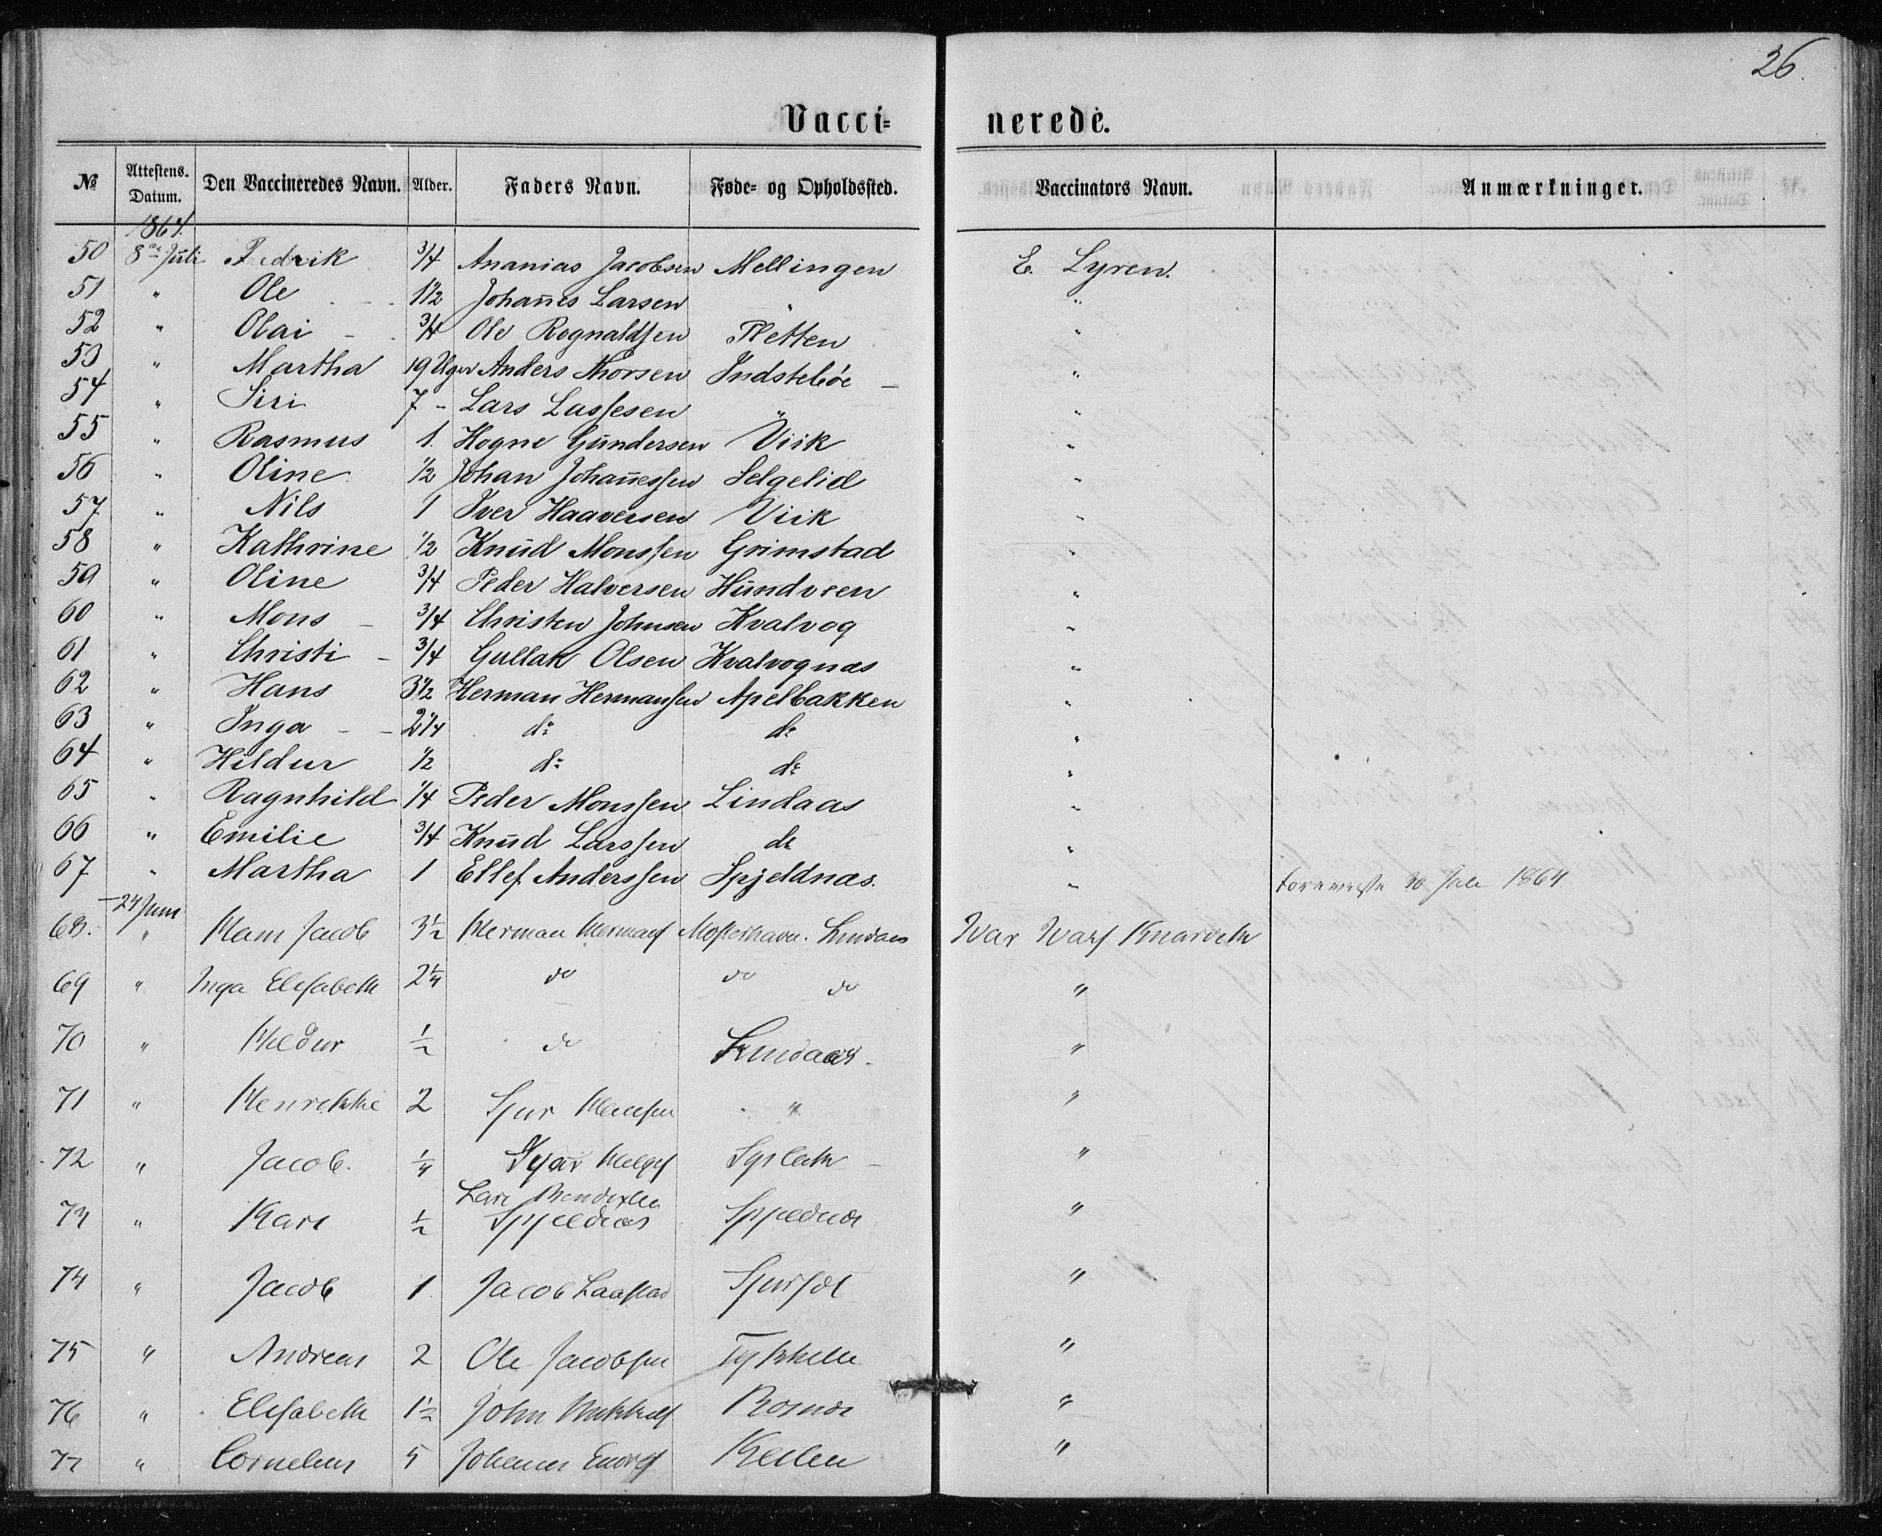 26.
Vacci= nerede.
№ Attestens. Datum. Den Vaccineredes Navn. Alder. Faders Navn. Føde= og Opholdssted. Vaccinators Navn. Anmærkninger.
1864.
50 8de Juli Fredrik 3/4 Ananias Jacobsen Mellingen E. Lyren.
51 " Ole 1 1/2 Johañes Larsen " "
52 " Olai 3/4 Ole Rognaldsen Fletten "
53 " Martha 19 Uger Anders Thorsen Indstebøe "
54 " Siri 7 - Lars Lassesen " "
55 " Rasmus 1. Hogne Gundersen Viik "
56 " Oline 1/2 Johan Johañessen Selgelid "
57 " Nils 1 Iver Haaversen Viik "
58 " Kathrine 1/2 Knud Monssen Grimstad "
59 " Oline 3/4 Peder Halversen Hundveen "
60 " Mons 3/4 Christen Johnsen Kvalvog "
61 " Christi 3/4 Gullak Olsen Kvalvognas "
62 " Hans 3 1/2 Herman Hermansen Apelbakken "
63 " Inga 2 1/4 do do "
64 " Hildur 1/2 do do "
65 " Ragnhild 1/4 Peder Monssen Lindaas "
66 " Emilie 3/4 Knud Larssen do "
67 " Martha 1 Ellef Anderssen Spjeldnas. " 1864
24 Juni
68. " Hans Jacob 3 1/2 Herman Hermans Lindaas Ivar Ivars
69 " Inga Elisabeth 2 1/4 do do do "
70 " Heldur 1/2 do Lindaas. "
71 " Henrikke 2 Sjur " "
72 " Jacob. 1/4 "
Lars
73 " Kari 1/2 Spjeldnæs Spjeldnæs "
74 " Jacob 1 Jacob "
75 " Andreas 2 Ole Jacobsen "
76 " Elisabeth 1 1/2 John "
77 " Cornelius 5 Johannes "